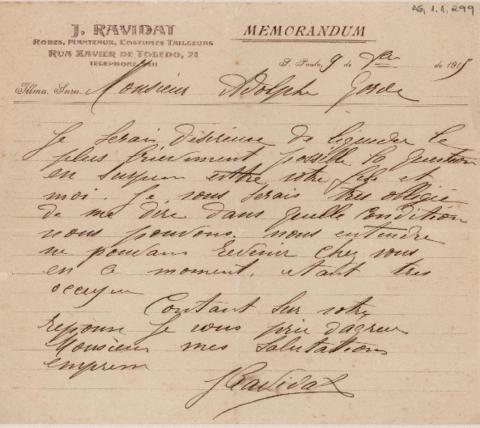 AG, 1.1.299
J. RAVIDAT
ROBES, MANTEAUX, COSTUMES TAILLEURS
RUA XAVIER DE TOLEDO, 21
TELEPHONE
MEMORANDUM
S. Paulo, 9 de de 191
Illma. Snra. Monsieur Adolphe
Je serais désireuse de liquider le
plus brièvement possible la question
en suspen entre votre fils et
moi. Je vous serais très obligée
de me dire dans quelle condition
nous pouvons nous entendre
ne pouvant revenir chez vous
en ce moment, etant très
occupée
Contant sur votre
reponse je vous prie d'agreer
Monsieur mes salutations
empress
J Ravidat